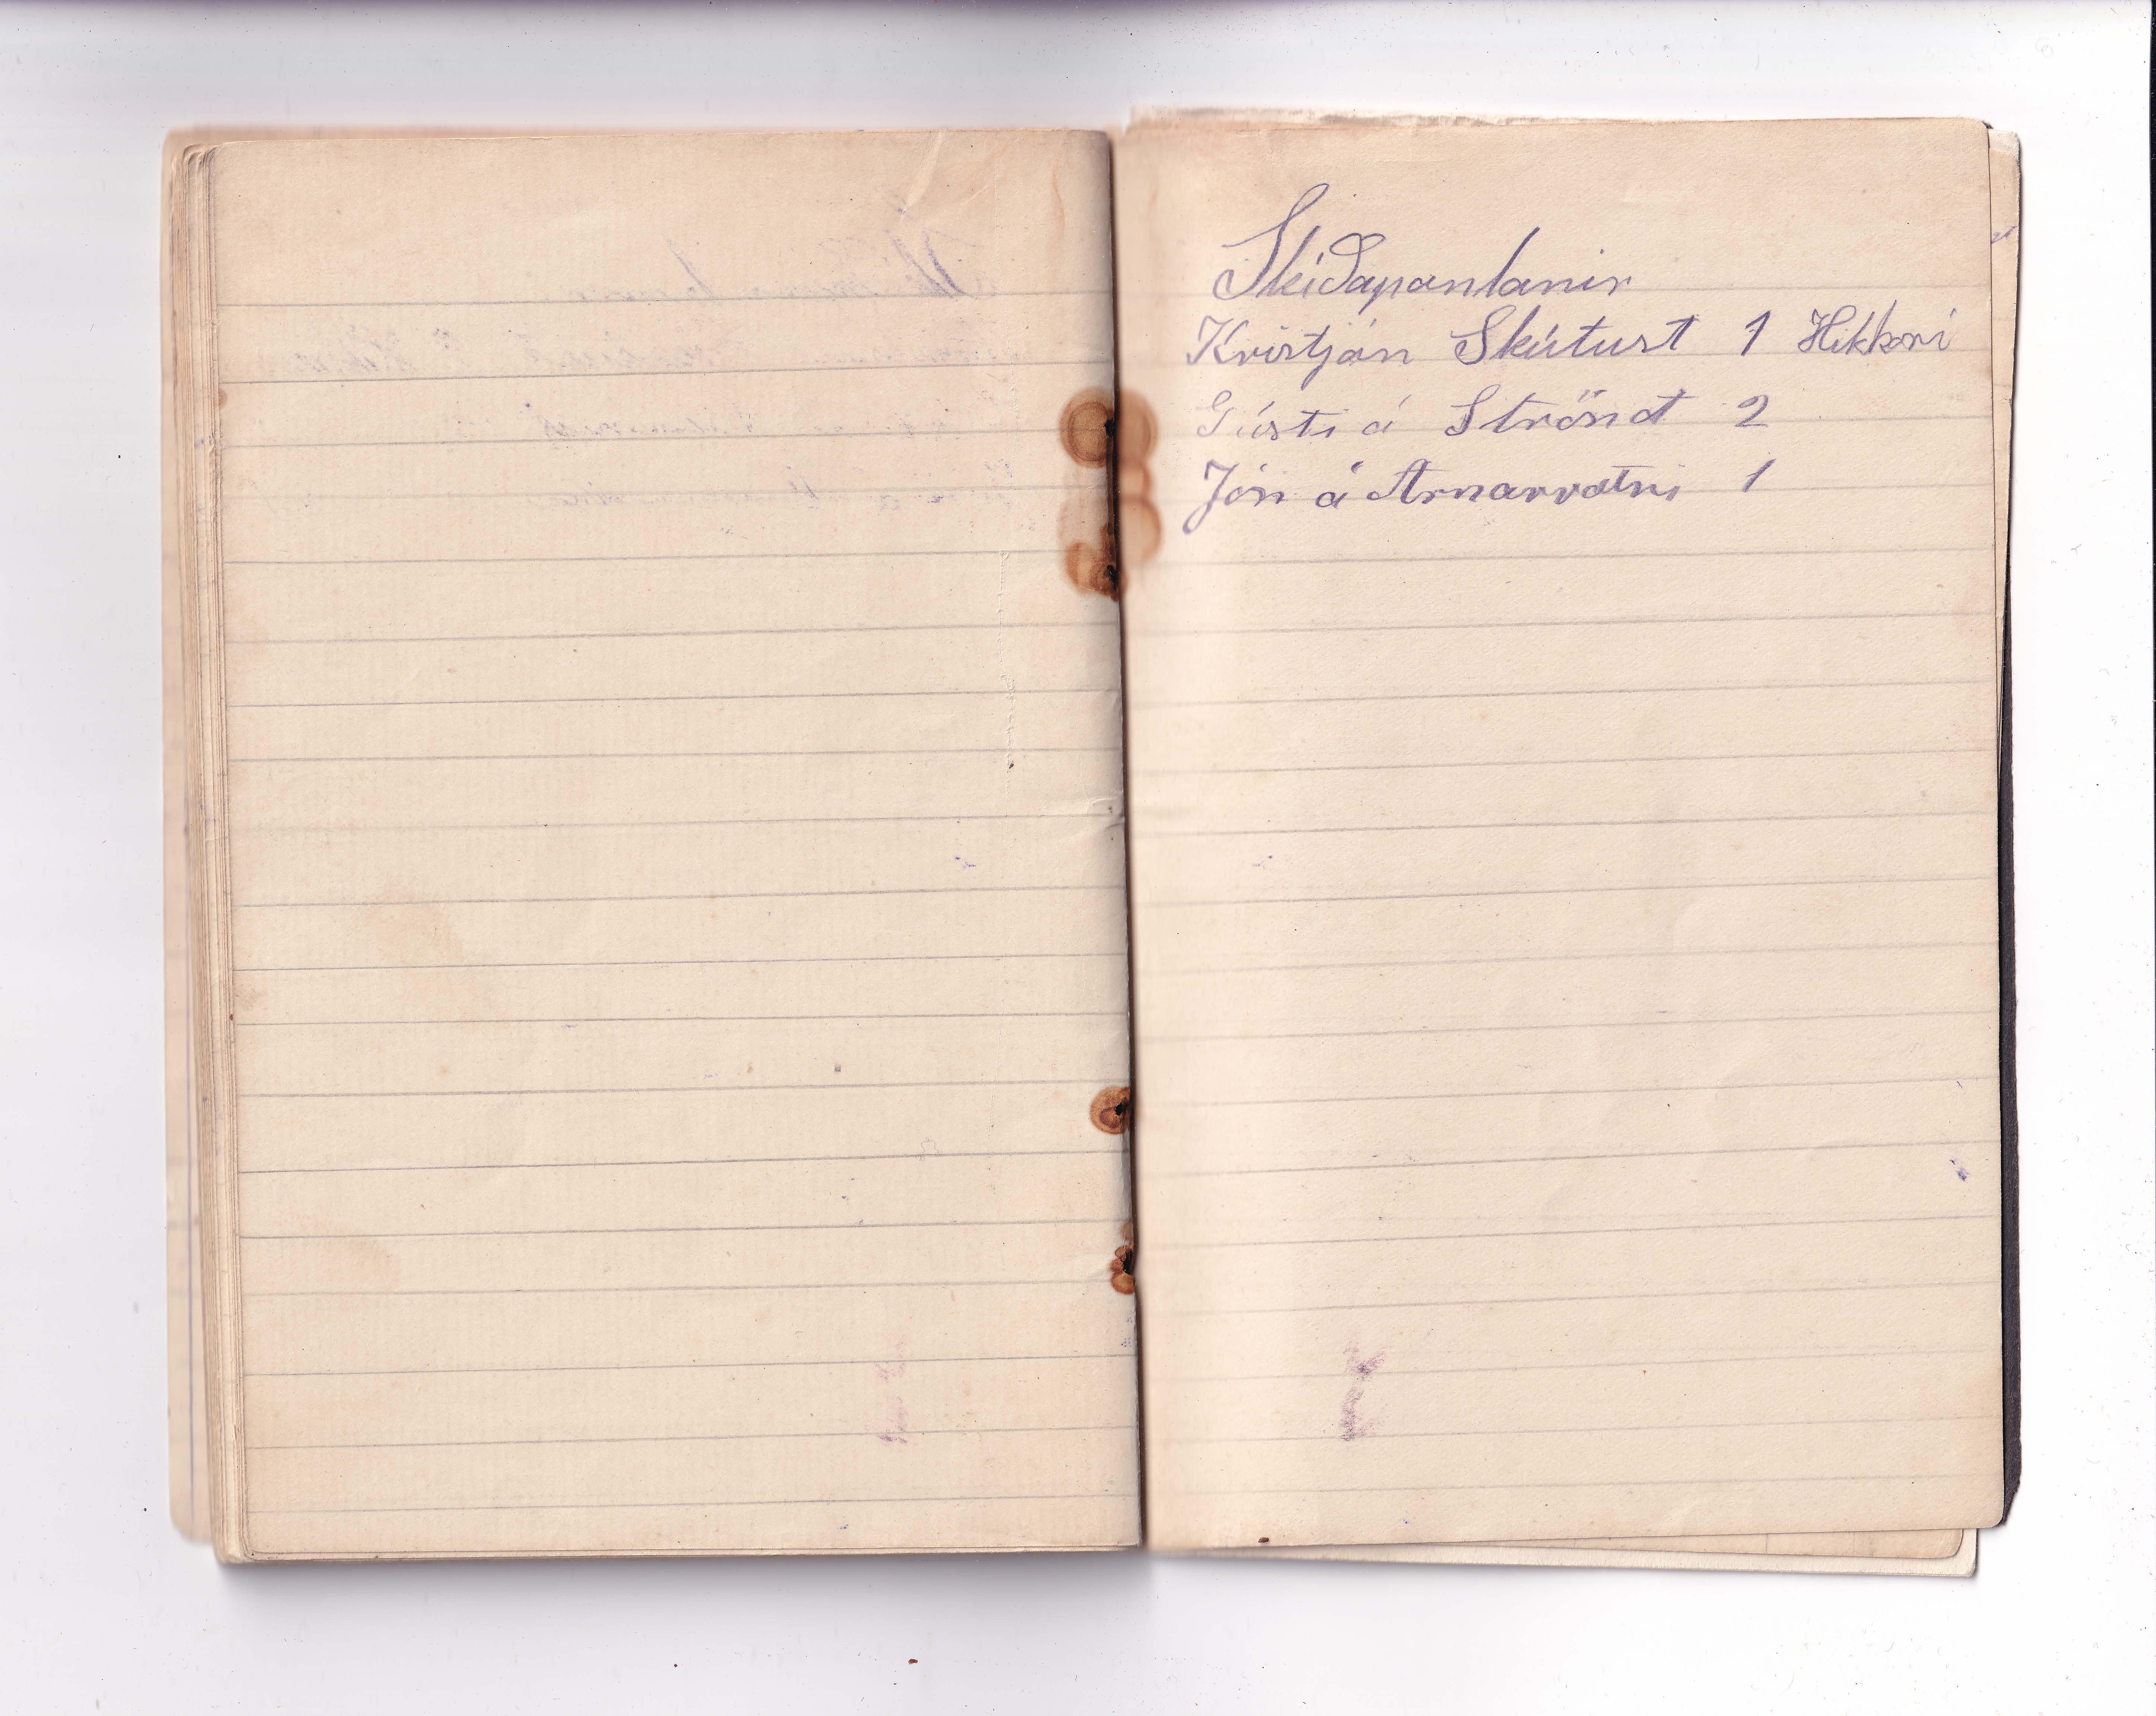 Skíðapantanir
Kristján Skútust 1 Hikkorí
Gústi á Strönd 2
Jón á Arnarvatni 1